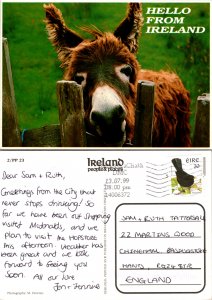 HELLO
FROM
IRELAND
2/PP 23
Ireland
people & places
Dear Sam + Ruth,
Greetings from the City that
never stops drinking! So
far we have been out shopping
visited McDonalds, and we
plan to visit the
this afternoon. Weather has
been great and we look
forward to seeing you
soon. All our love
Jon + Jennine
23.07.99
08:00 pm
14006372
EIRE
30
SAM + RUTH TATTERSALL
22 MARTINS GROVE
BASINGSTOKE
HANTS
ENGLAND